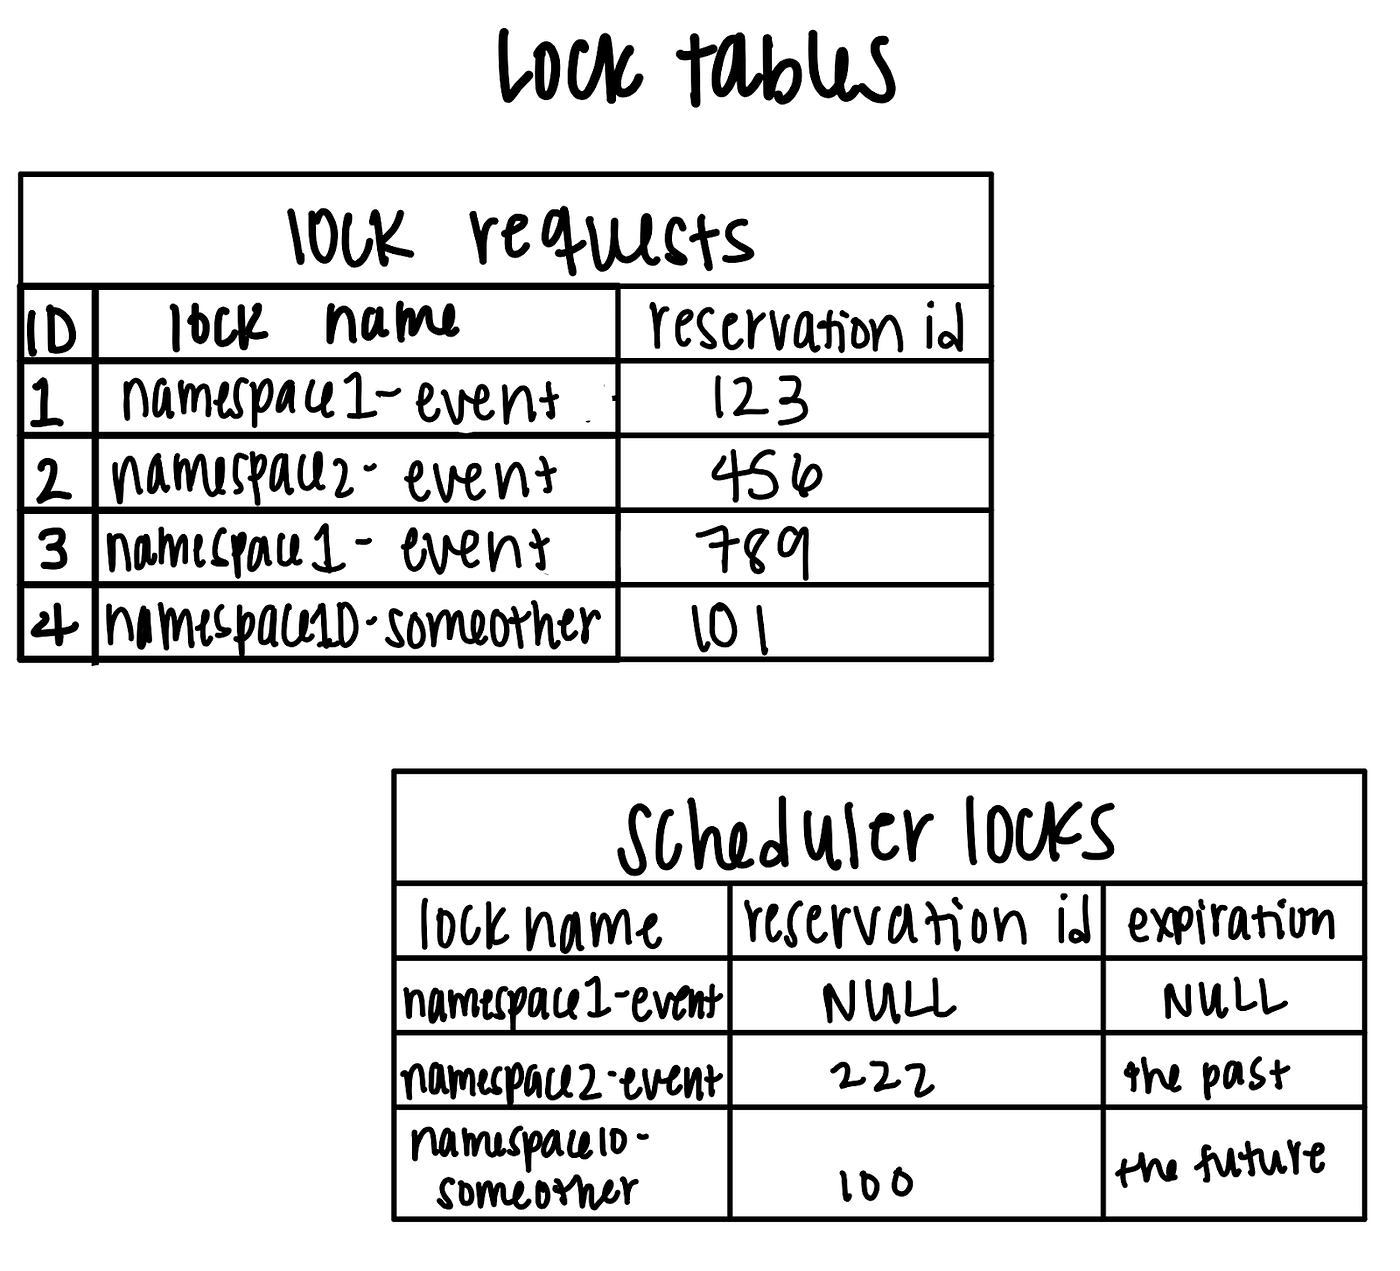 Lock tables
lock requests
ID lock name reservation id
1 namespace1-event 123
2 namespace2-event 456
3 namespace1-event 789
4 namespace10-someother 101
scheduler locks
lock name reservation id expiration
namespace1-event NULL NULL
namespace2-event 222 the past
namespace10-
someother 100 the future